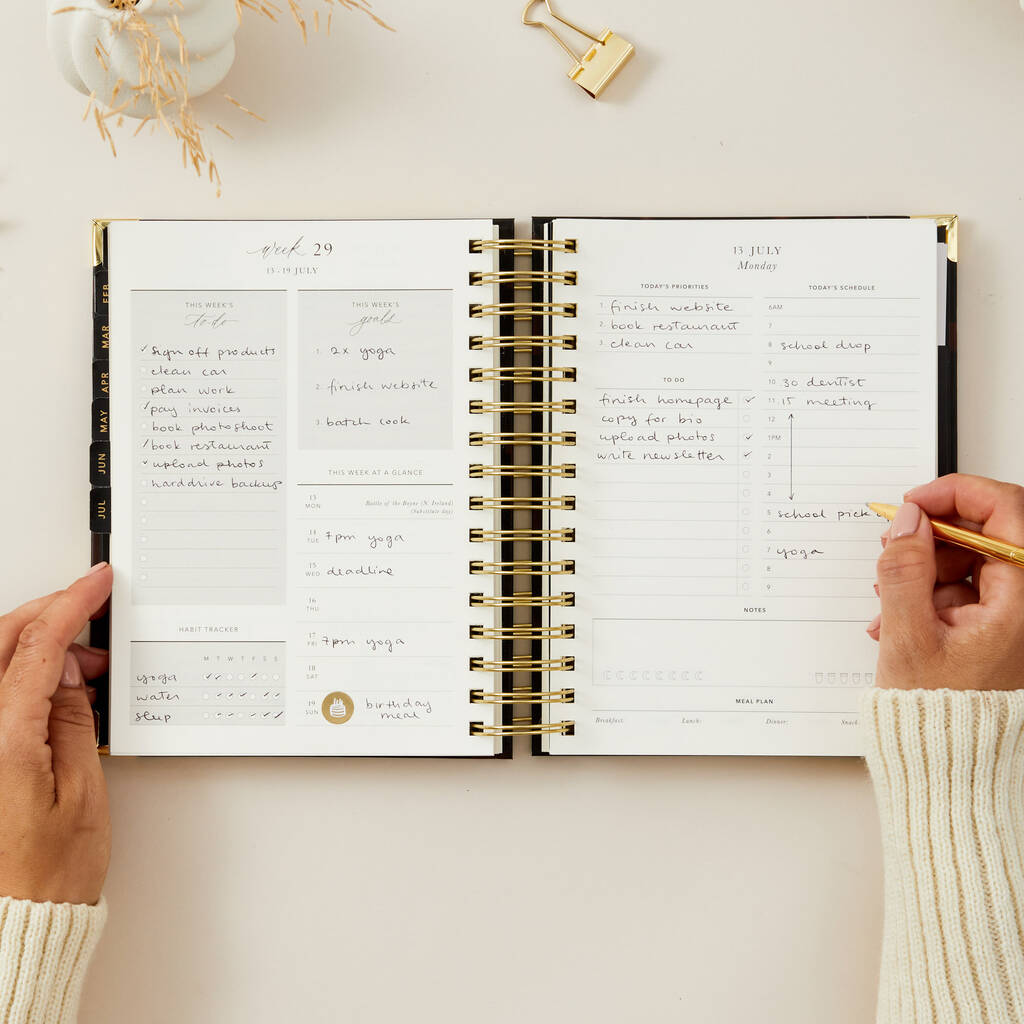 FEB
MAR
APR
MAY
JUN
JUL
week 29
13 - 19 JULY
THIS WEEK'S
to-do
✓ sign off products
clean car
plan work
✓ pay invoices
book photoshoot
✓ book restaurant
✓ upload photos
harddrive backup
HABIT TRACKER
M T W T F S S
yoga
water
sleep
THIS WEEK'S
goals
1. 2x yoga
2. finish website
3. batch cook
THIS WEEK AT A GLANCE
13 MON Battle of the Boyne (N. Ireland)
(Substitute day)
14 TUE 7pm yoga
15 WED deadline
16 THU
17 FRI 7pm yoga
18 SAT
19 SUN birthday
meal
13 JULY
Monday
TODAY'S PRIORITIES
1. finish website
2. book restaurant
3. clean car
TO DO
finish homepage ✓
copy for bio
upload photos ✓
write newsletter ✓
TODAY'S SCHEDULE
6AM
7
8 school drop
9
10 30 dentist
11 15 meeting
12
1PM
2
3
4
5 school pick
6
7 yoga
8
9
NOTES
MEAL PLAN
Breakfast: Lunch: Dinner: Snack